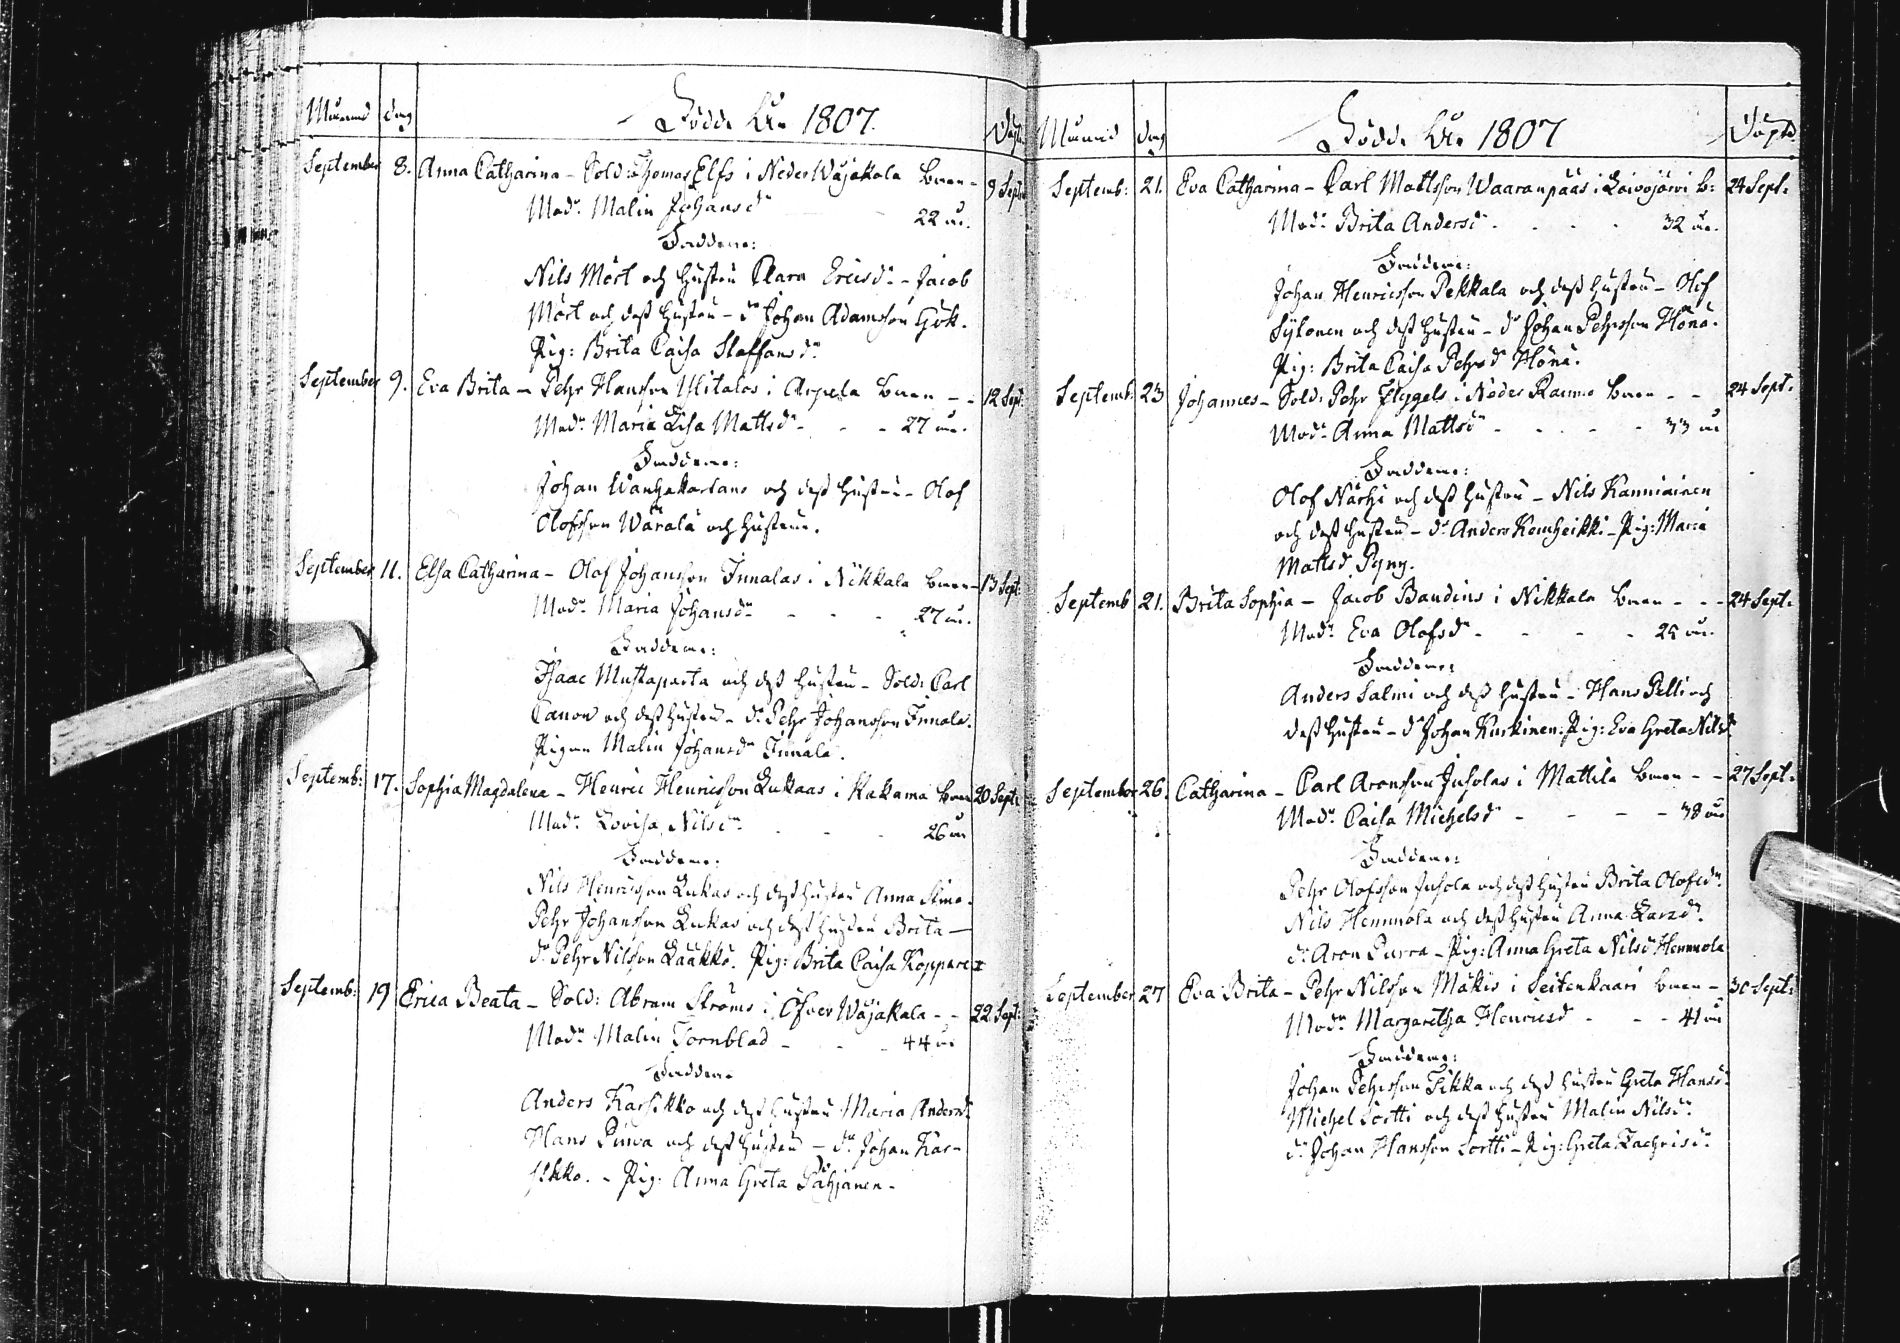 Månad dag Födde År 1807. Döpt.
September 8. Anna Catharina - Sold: Thomas Elfs i Neder Wäjakala barn - 9 Sept:
Mod:r Malin Johansd:r 22 år.
Faddrar:
Nils Mört och hustru Clara Ericsd:r - Jacob
Mört och dess hustru - d:r Johan Adamsson Gök.
Pig: Brita Caisa Staffansd:r
September 9. Eva Brita - Pehr Hansson Ylitalos i Arpela barn - - 12 Sept:
Mod:r Maria Lisa Mattsd:r - - - 27 år.
Faddrar:
Johan Wanhakartano och dess hustru - Olof
Olofsson Wärälä och hustru.
September 11. Elsa Catharina - Olof Johansson Innalas i Nikkala barn - 13 Sept:
Mod:r Maria Johansd:r - - - 27 år.
Faddrar:
Isaac Mustaparta och dess hustru - Sold: Carl
Canon och dess hustru - d:r Pehr Johansson Innala.
Pigan Malin Johansd:r Innala.
Septemb: 17. Sophia Magdalena - Henric Henricsson Lukaas i Kakama barn 20 Sept:
Mod:r Lovisa Nilsd:r - - - 26 år
Faddrar:
Nils Henricsson Lukas och dess hustru Anna Stina.
Pehr Johansson Lukkas och dess hustru Brita -
d:r Pehr Nilsson Laakko. Pig: Brita Caisa Koppari
Septemb: 19 Erica Beata - Sold: Abram Ströms i Öfver Wäjakala - - 22 Sept:
Mod:r Malin Törnblad - - - 44 år
Faddrar
Anders Karsikko och dess hustru Maria Andersd:r
Hans Pinva och dess hustru - d:r Johan Kar-
sikko. - Pig: Anna Greta Pähjänen -
Månad dag Födde År 1807 Döpte
Septemb: 21. Eva Catharina - Carl Mattsson Waaranpääs i Laivojärvi b: 24 Sept:
Mod:r Brita Andersd:r - - - - 32 år.
Faddrar:
Johan Henricsson Pekkala och dess hustru - Olof
Sylonen och dess hustru - d:r Johan Pehrsson Hönä.
Pig: Brita Caisa Pehrsd:r Hönä.
Septemb: 23 Johannes - Sold: Pehr Flygels i Neder Raumo barn - - 24 Sept:
Mod:r Anna Mattsd:r - - - - - 33 år
Faddrar:
Olof Närhi och dess hustru - Nils Kanniainen
och dess hustru - d:r Anders Kemheikki - Pig: Maria
Mattsd:r Pyny.
Septemb 21. Brita Sophia - Jacob Baudins i Nikkala barn - - - 24 Sept:
Mod:r Eva Olofsd:r - - - - 25 år.
Faddrar:
Anders Salmi och dess hustru - Hans Pelli och
dess hustru - d:r Johan Kurkinen: Pig: Eva Greta Nilsd:r
September 26. Catharina - Carl Aronsson Juholas i Mattila barn - - 27 Sept:
Mod:r Caisa Michelsd:r - - - - 38 år
Faddrar:
Pehr Olofsson Juhola och dess hustru Brita Olofsd:r
Nils Hemmola och dess hustru Anna Larsd:r
d:r Aron Purra - Pig: Anna Greta Nilsd:r Hemmola
September 27 Eva Brita - Pehr Nilsson Mäkis i Seitenkaari barn - 30 Sept:
Mod:r Margaretha Henricsd:r - - - 41 år
Faddrar:
Johan Pehrsson Tikka och dess hustru Greta Hansd:r
Michel Lortti och dess hustru Malin Nilsd:r
d:r Johan Hansson Lortti - Pig: Greta Zachrisd:r